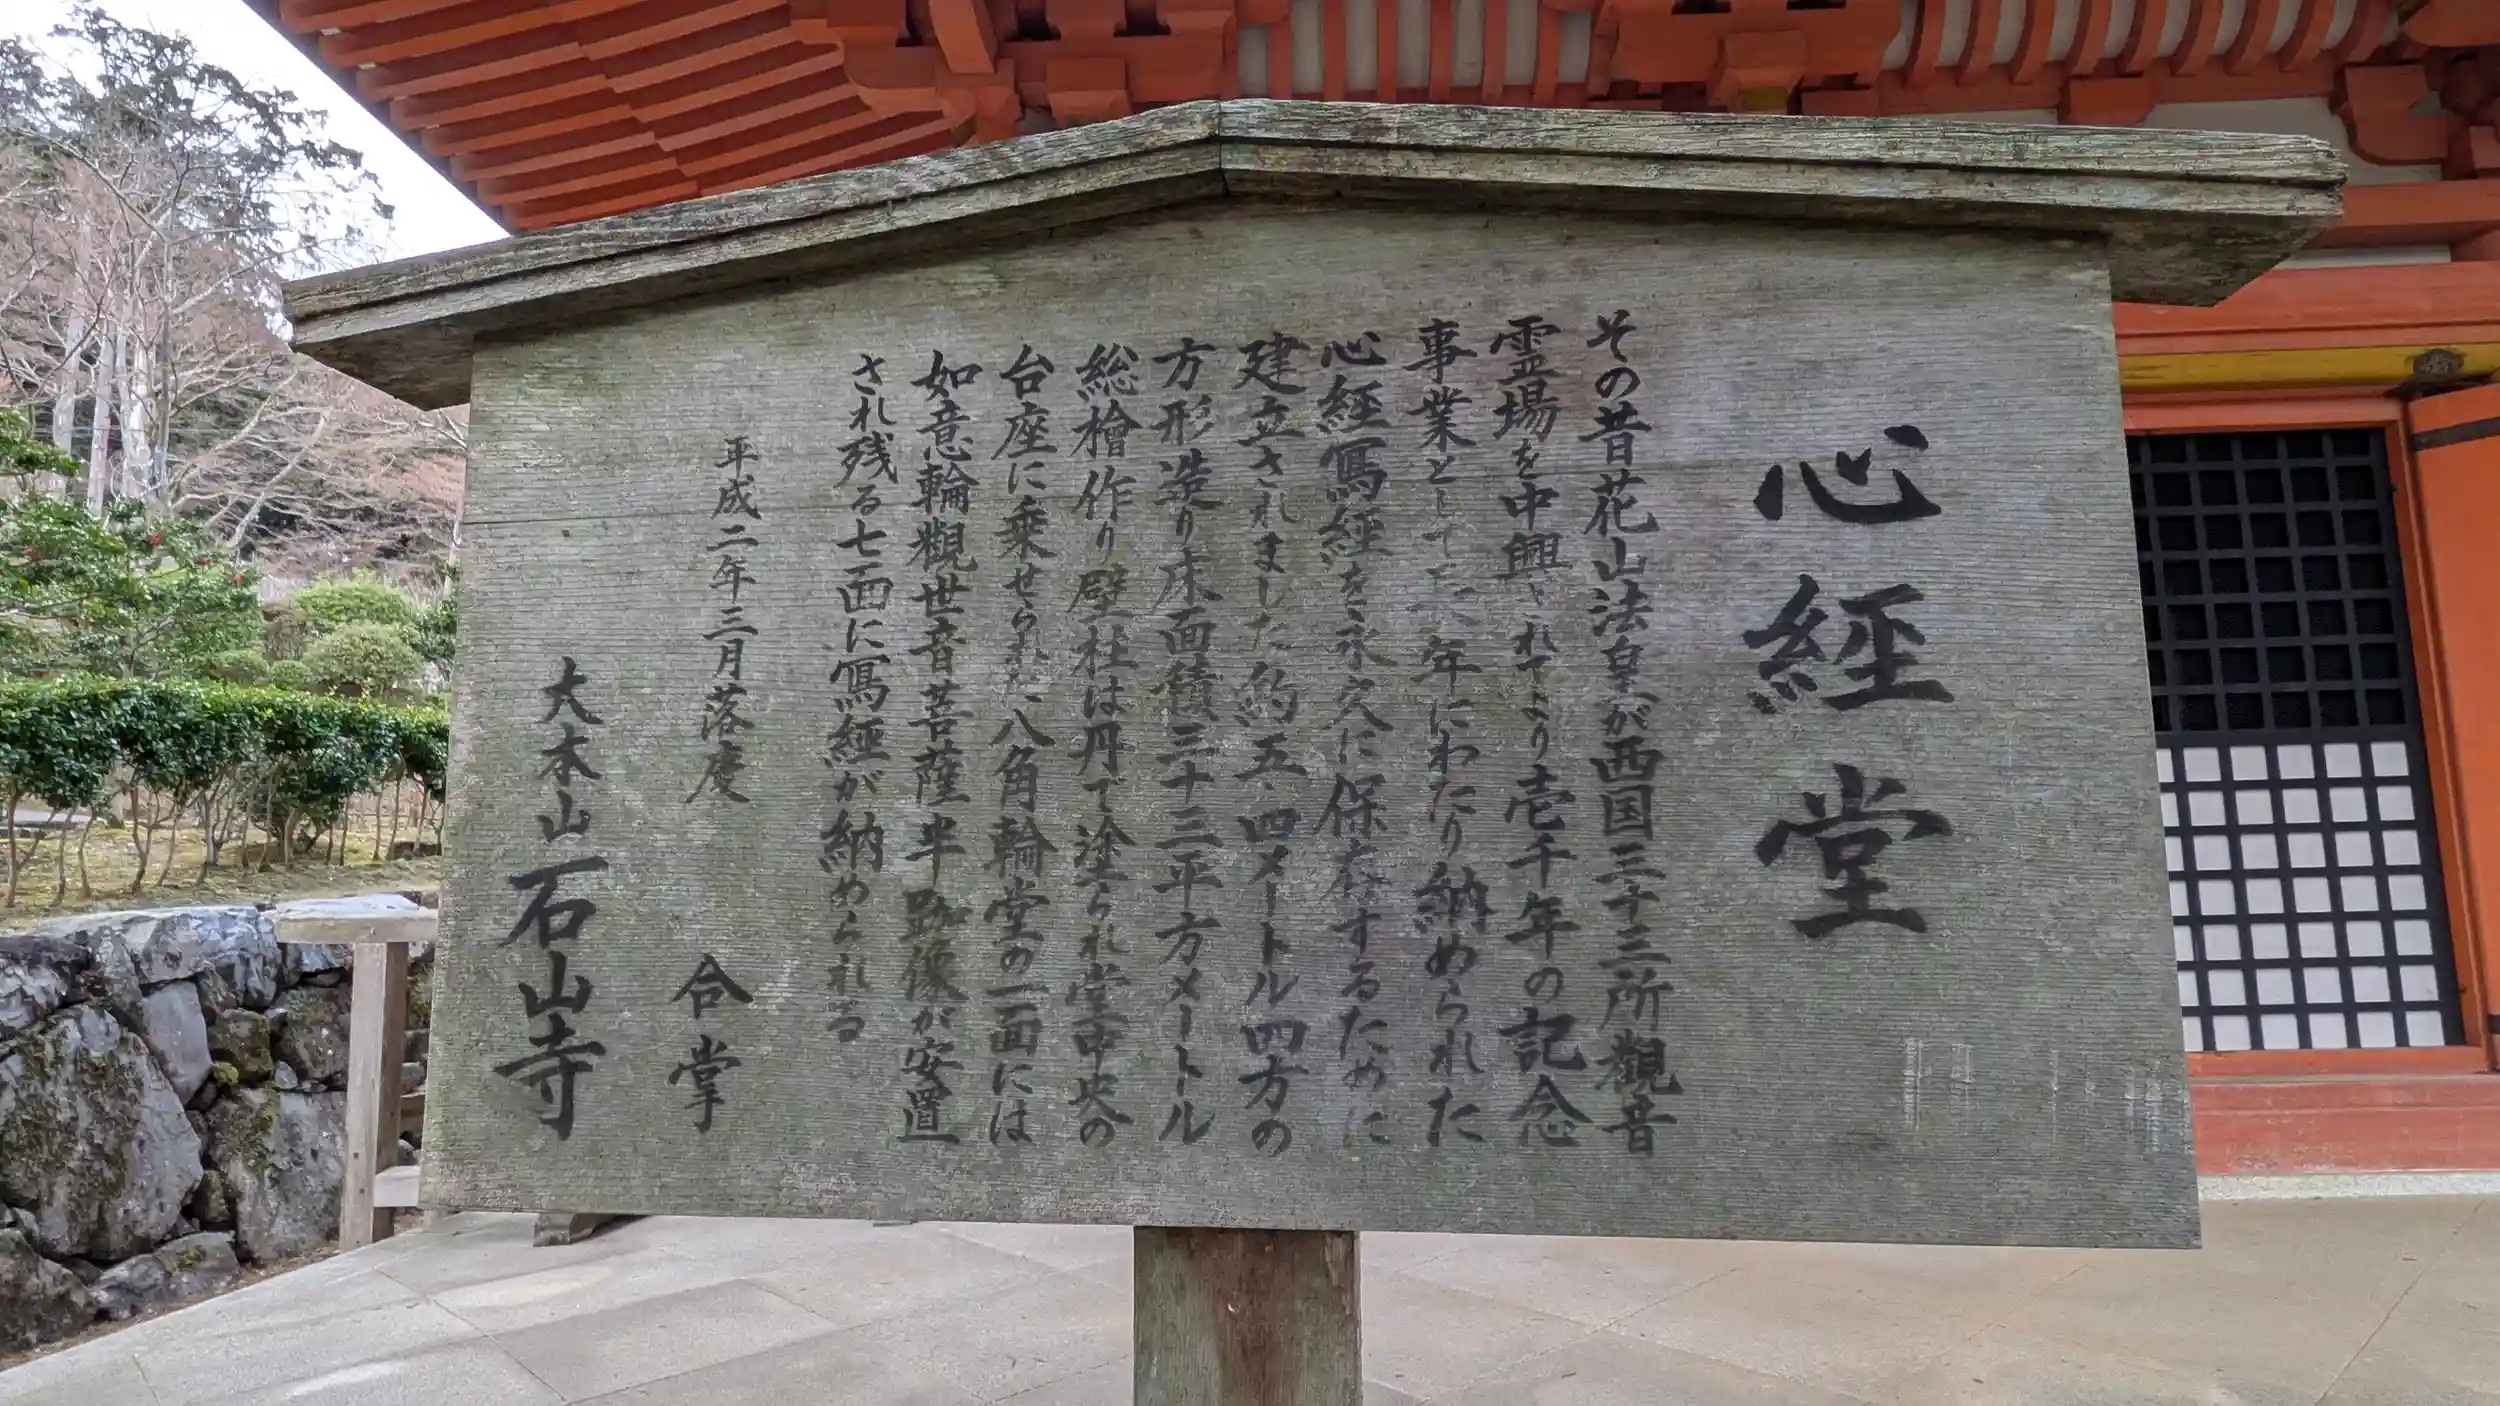 心經堂
その昔花山法皇が西国三十三所観音
霊場を中興されてより壱千年の記念
事業として二、年にわたり納められた
心経寫経を永久に保存するために
建立されました約五.四メートル四方の
方形造り床面積三十三平方メートル
総檜作り壁柱は丹で塗られ堂中央の
台座に乗せられた八角輪堂の一面には
如意輪觀世音菩薩半跏像が安置
され残る七面に寫経が納められる
平成二年三月落慶
合掌
大本山石山寺